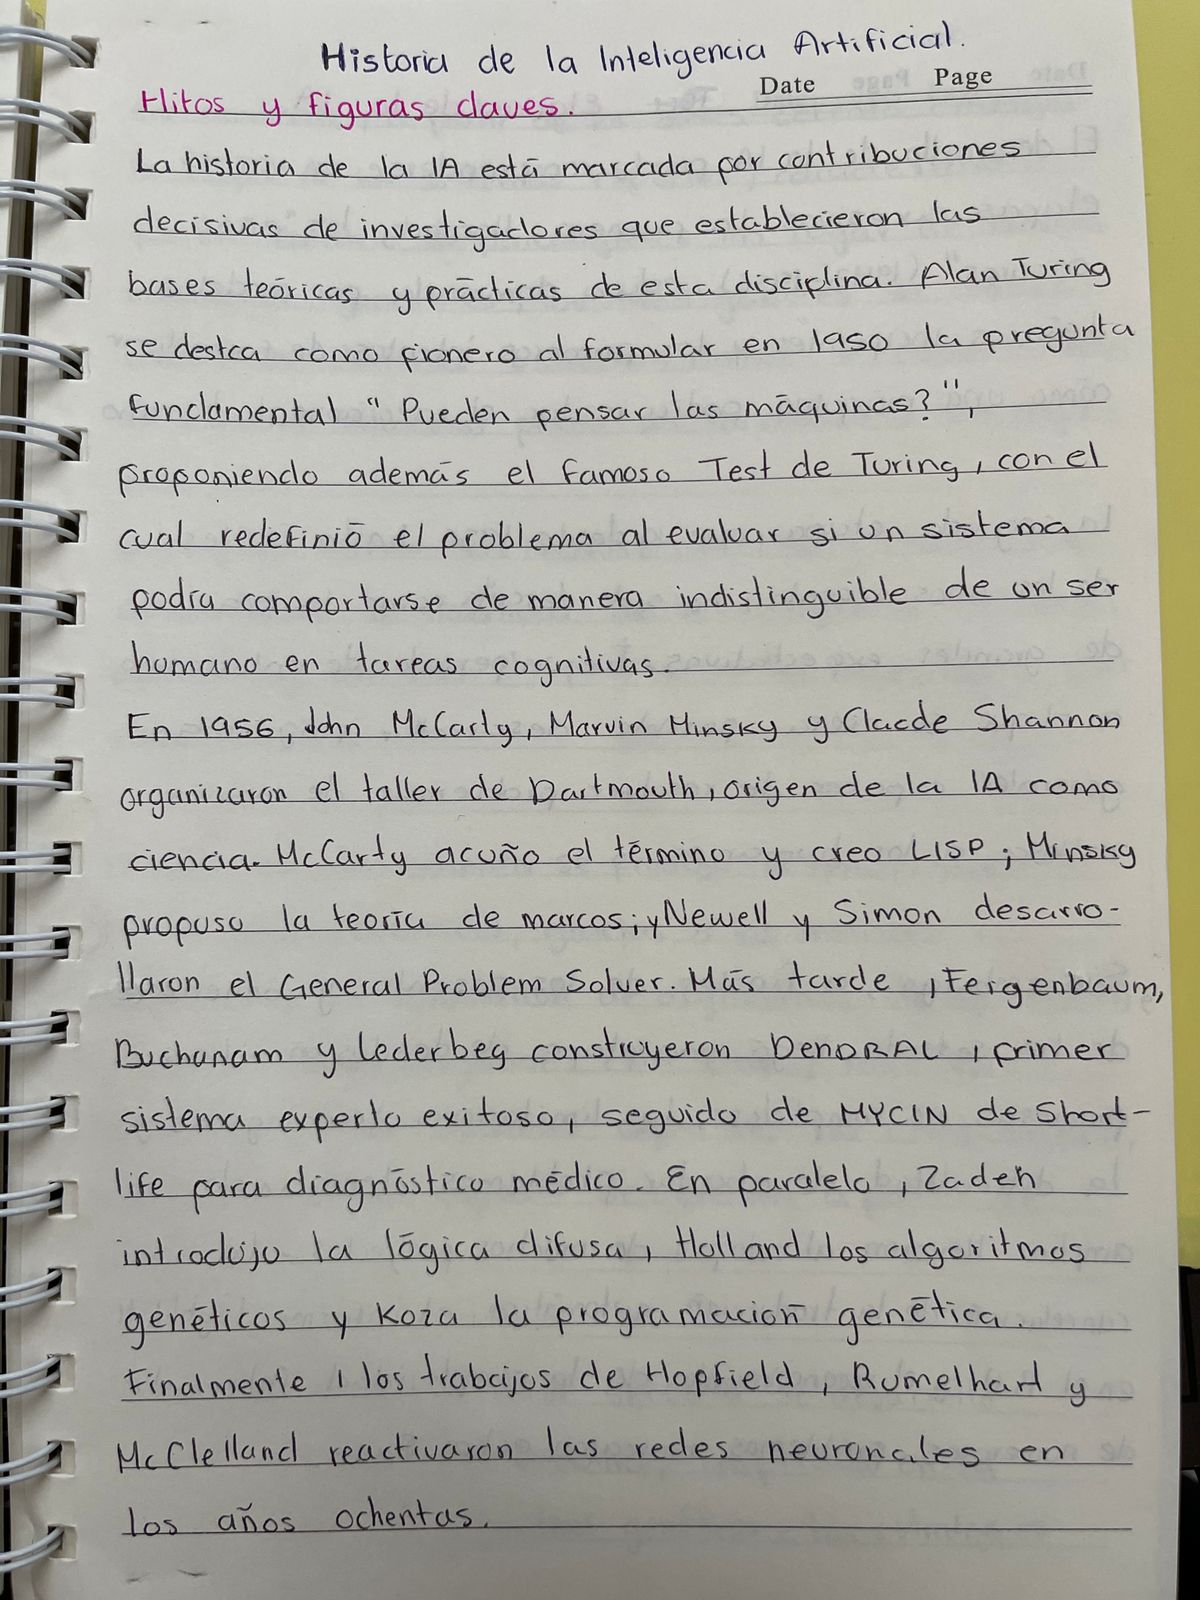 Historia de la Inteligencia Artificial.
Date Page
Hitos y figuras claves.
La historia de la IA está marcada por contribuciones
decisivas de investigadores que establecieron las
bases teóricas y prácticas de esta disciplina. Alan Turing
se destca como pionero al formular en 1950 la pregunta
fundamental "Pueden pensar las máquinas?",
proponiendo además el famoso Test de Turing, con el
cual redefinió el problema al evaluar si un sistema
podía comportarse de manera indistinguible de un ser
humano en tareas cognitivas.
En 1956, John McCarty, Marvin Minsky y Claude Shannon
organizaron el taller de Dartmouth, origen de la IA como
ciencia. McCarty acuño el término y creo LISP; Minsky
propuso la teoría de marcos; y Newell y Simon desarro-
llaron el General Problem Solver. Más tarde, Feigenbaum,
Buchanam y Lederbeg construyeron DENDRAL, primer
sistema experto exitoso, seguido de MYCIN de Short-
life para diagnóstico médico. En paralelo, Zadeh
introdujo la lógica difusa, Holland los algoritmos
genéticos y Koza la programación genética.
Finalmente, los trabajos de Hopfield, Rumelhart y
McClelland reactivaron las redes neuronales en
los años ochentas.